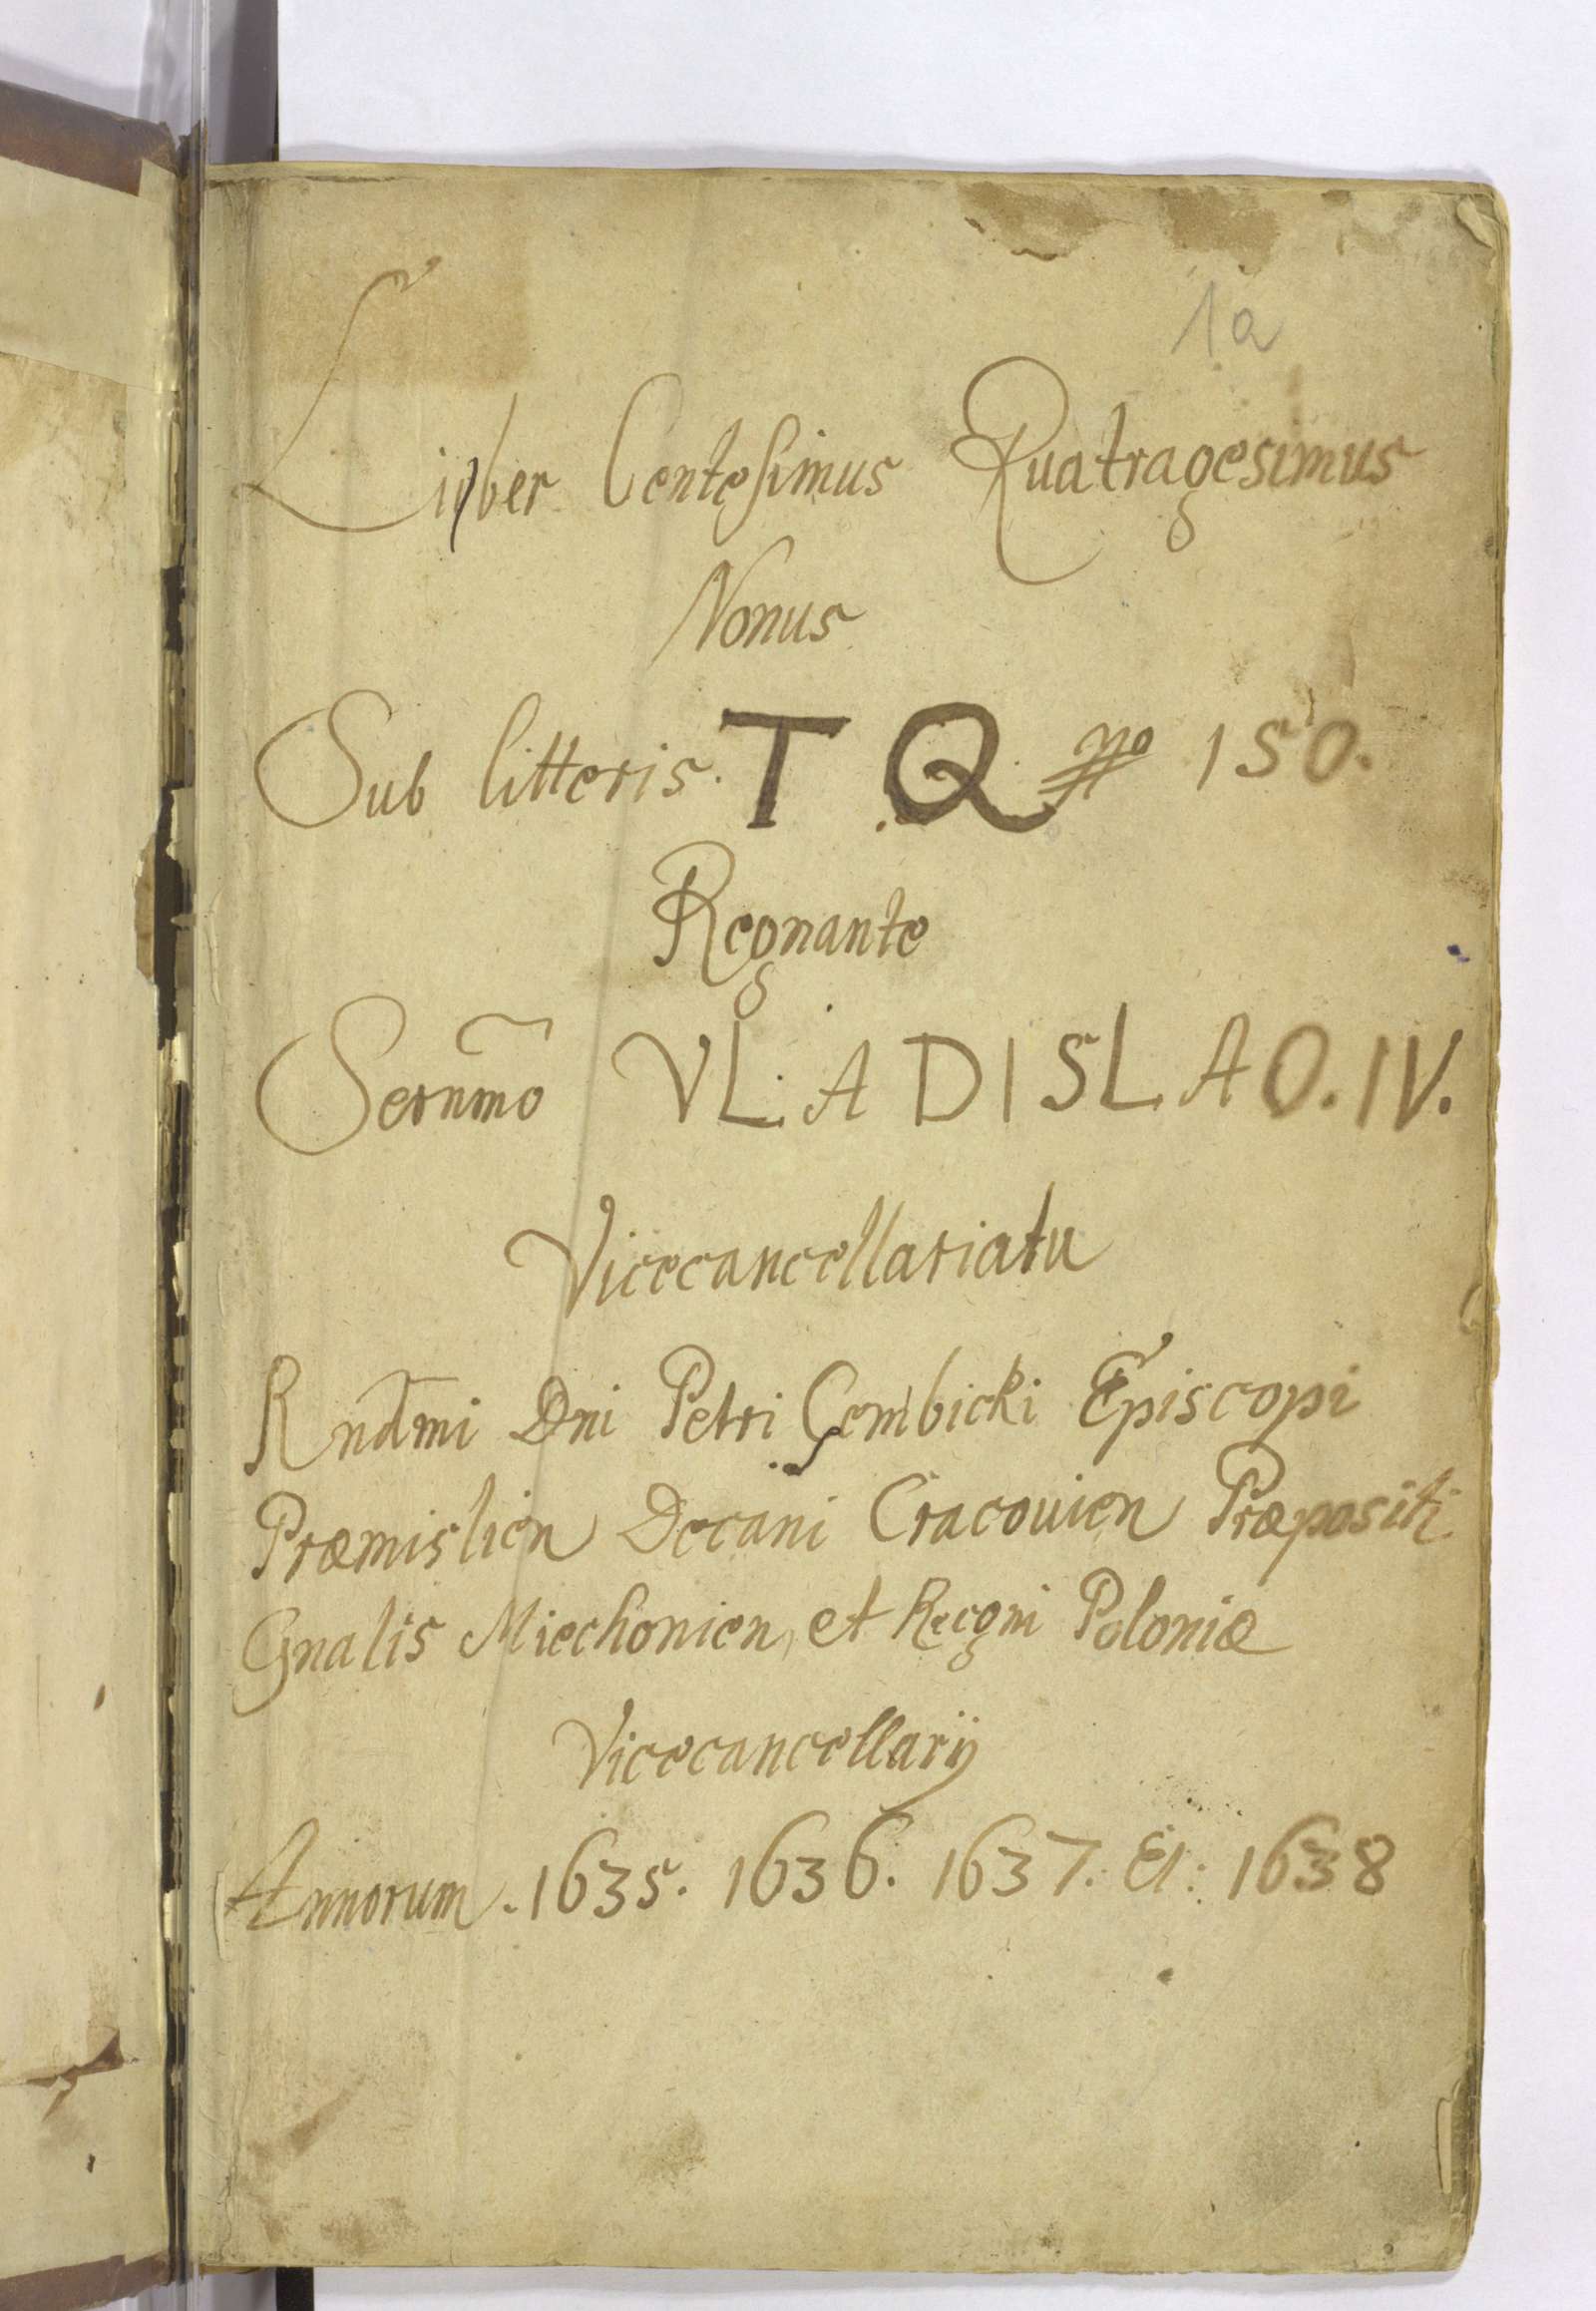 1a
Liber Centesimus Quatragesimus
Nonus
Sub litteris. T Q no 150.
Regnante
Sernmo VLADISLAO. IV.
Vicecancellariatu
Rndmi Dni Petri Gembicki Episcopi
Præmislien Decani Cracouien Præpositi
Gnalis Miechonien, et Regni Poloniæ
Vicecancellarij
Annorum. 1635. 1636. 1637. Et: 1638